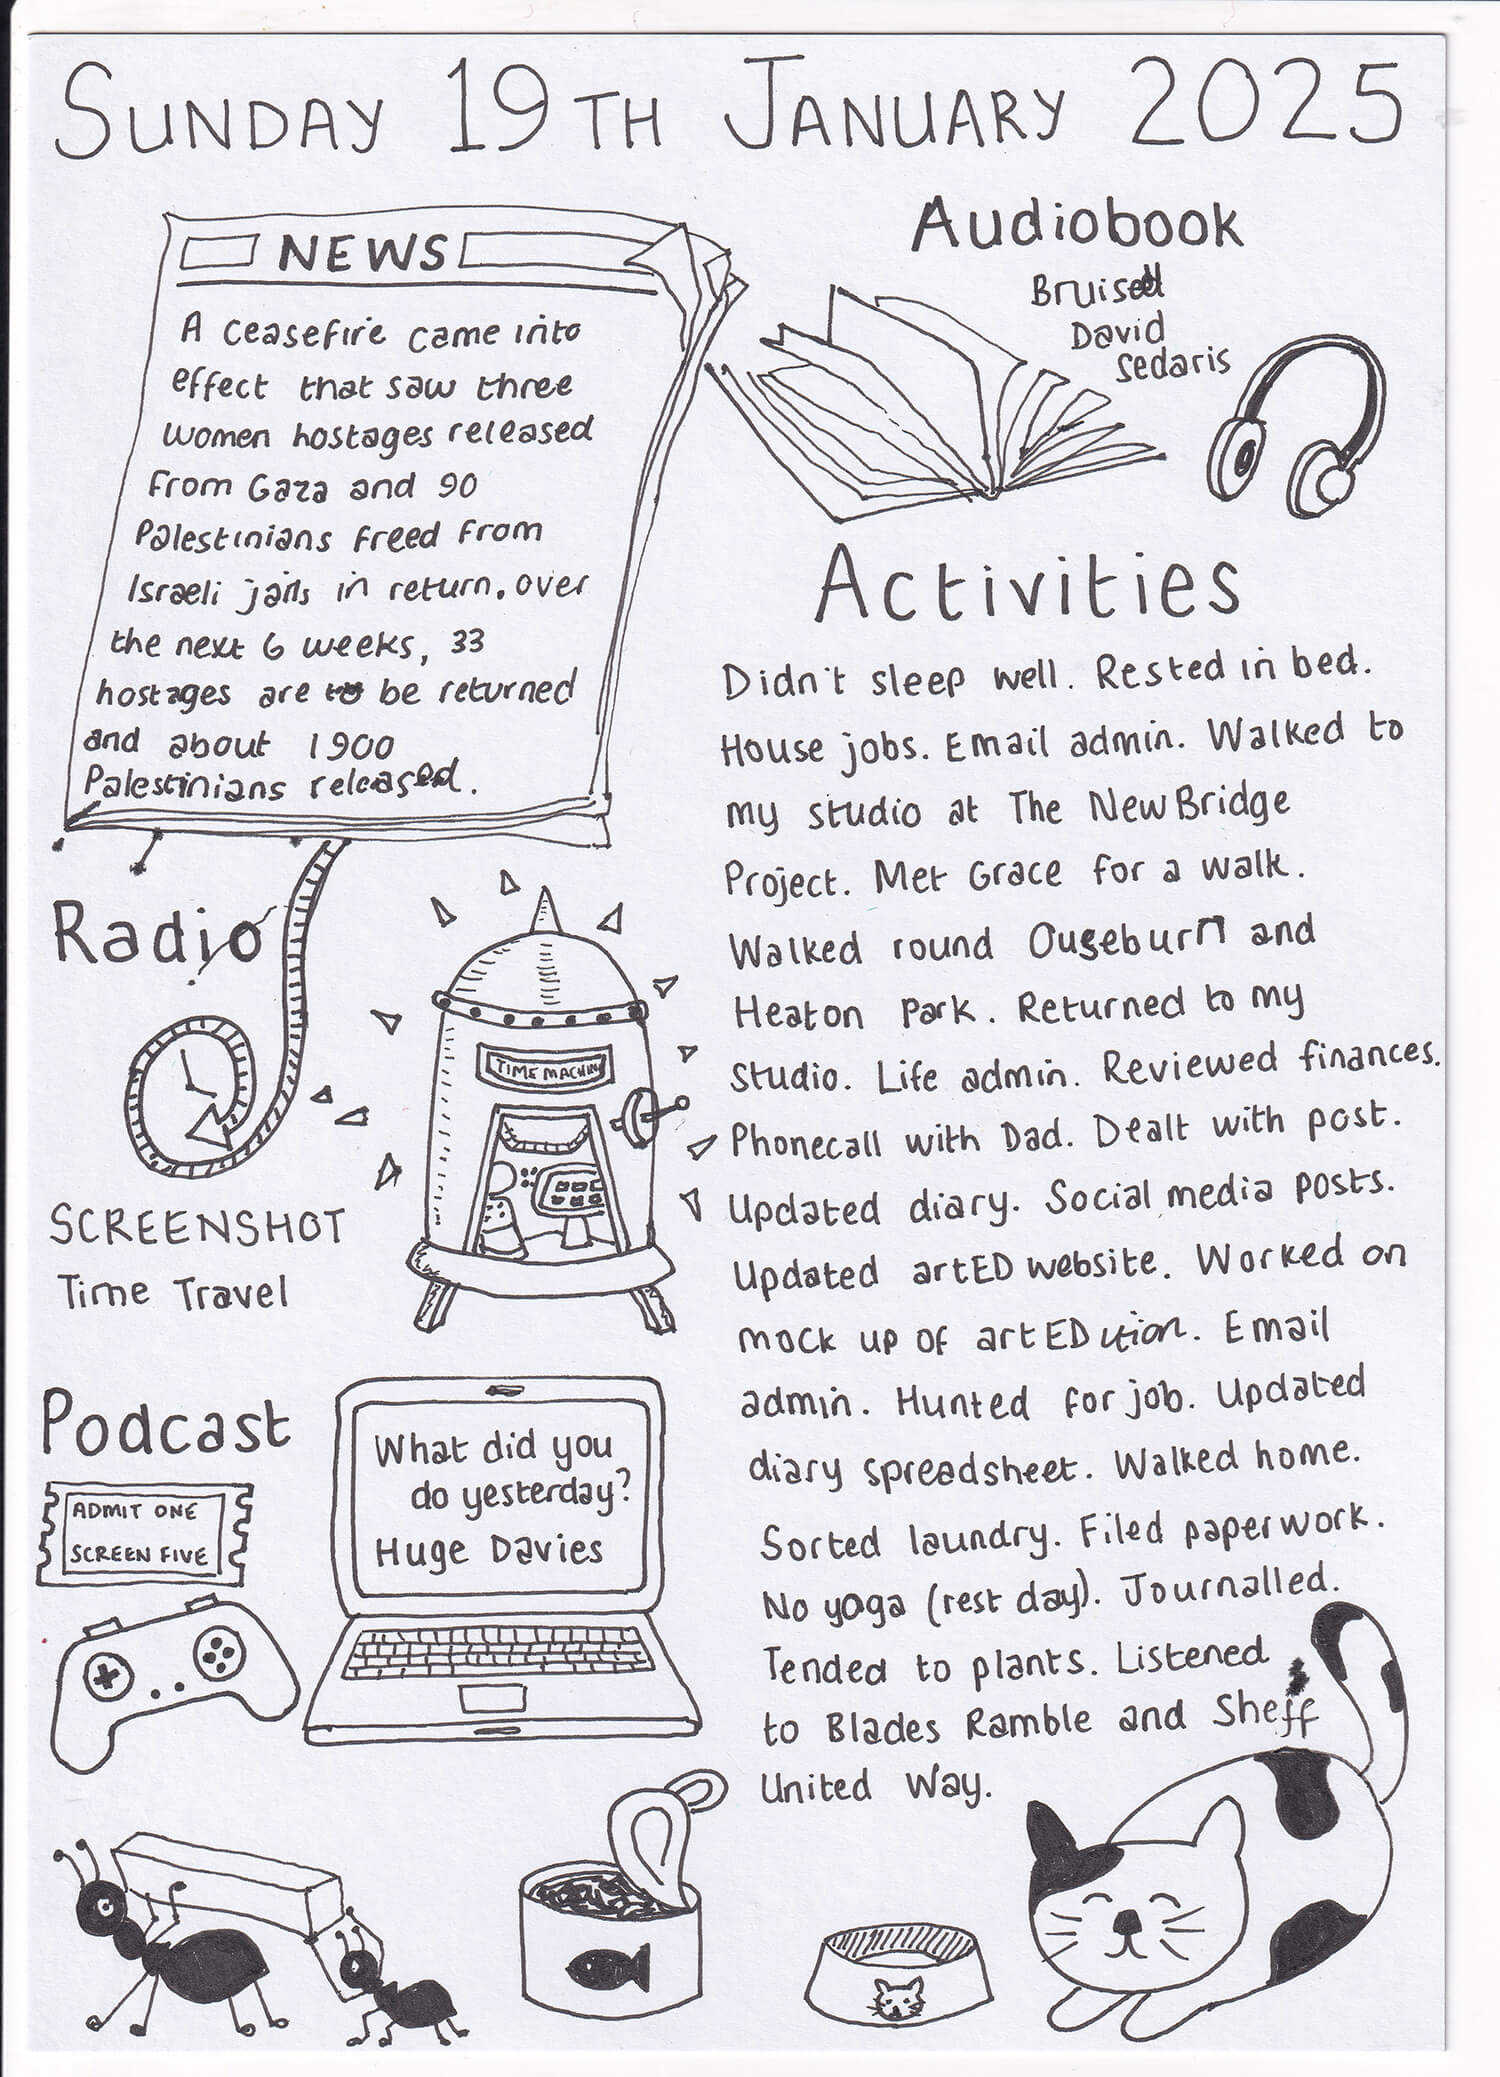 SUNDAY 19TH JANUARY 2025
NEWS
A ceasefire came into
effect that saw three
women hostages released
from Gaza and 90
Palestinians freed from
Israeli jails in return. Over
the next 6 weeks, 33
hostages are to be returned
and about 1900
Palestinians released.
Audiobook
Bruised
David
Sedaris
Activities
Didn't sleep well. Rested in bed.
House jobs. Email admin. Walked to
my studio at The NewBridge
Project. Met Grace for a walk.
Walked round Ouseburn and
Heaton Park. Returned to my
studio. Life admin. Reviewed finances.
Phonecall with Dad. Dealt with post.
Updated diary. Social media posts.
Updated artED website. Worked on
mock up of artEDition. Email
admin. Hunted for job. Updated
diary spreadsheet. Walked home.
Sorted laundry. Filed paperwork.
No yoga (rest day). Journalled.
Tended to plants. Listened
to Blades Ramble and Sheff
United Way.
Radio
TIME MACHINE
SCREENSHOT
Time Travel
Podcast
ADMIT ONE
SCREEN FIVE
What did you
do yesterday?
Huge Davies